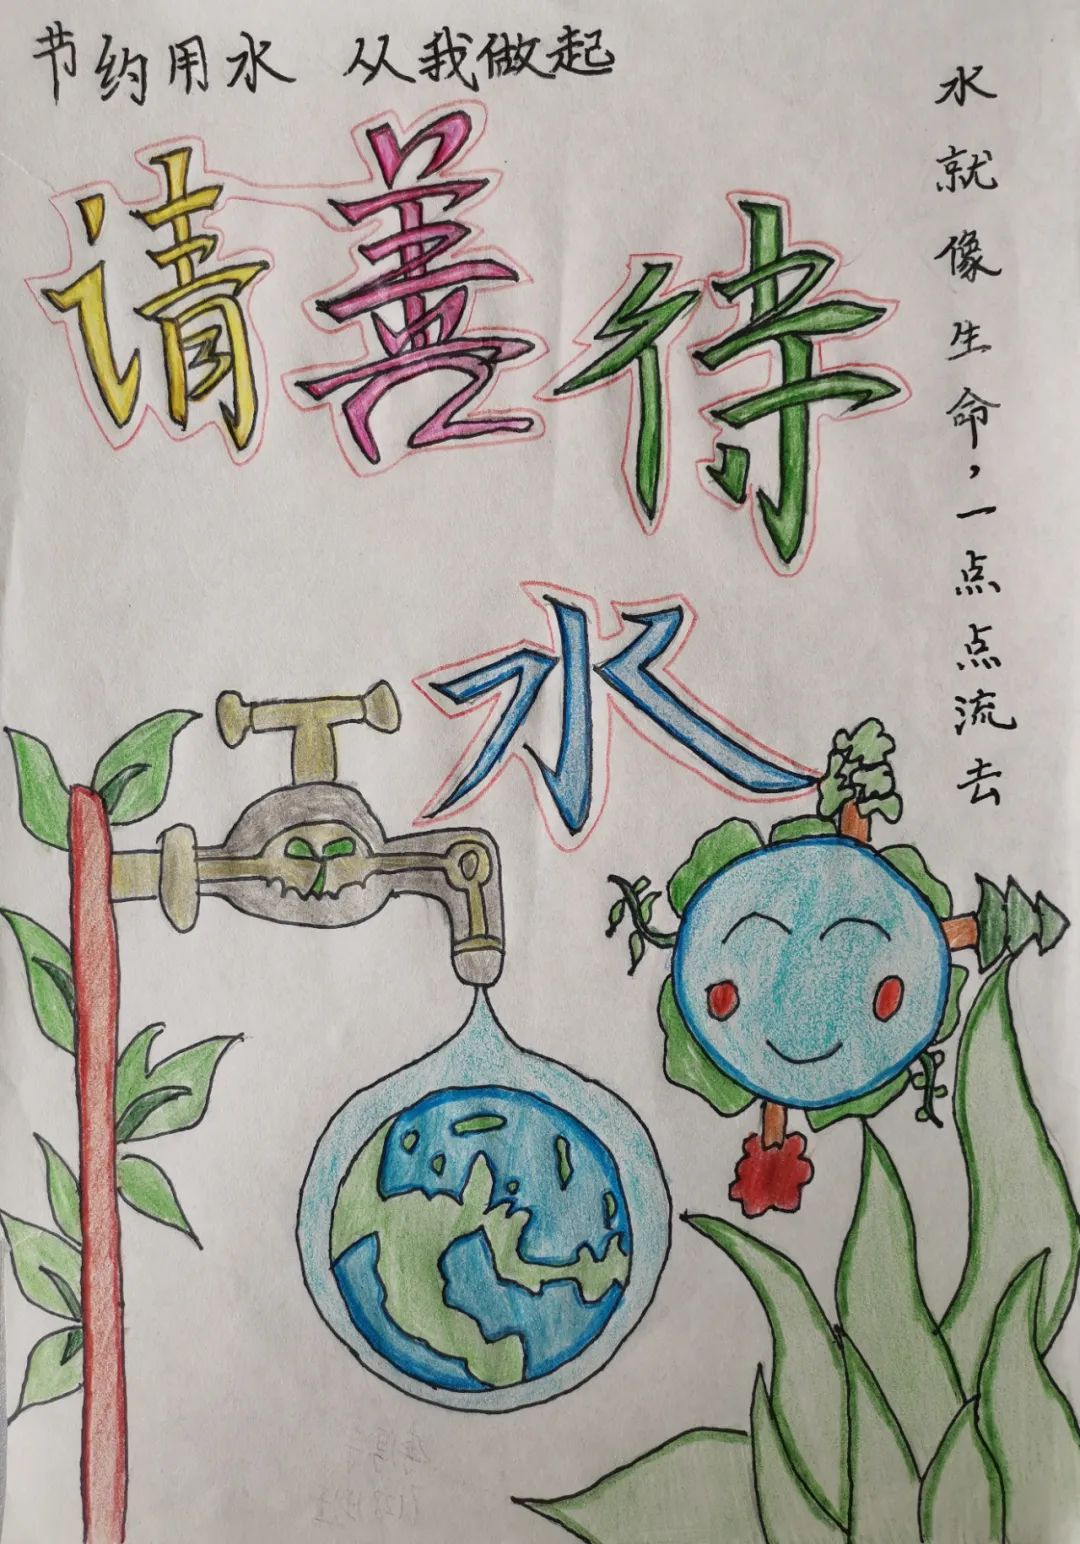 节约用水 从我做起
请善待
水
水就像生命,一点点流去